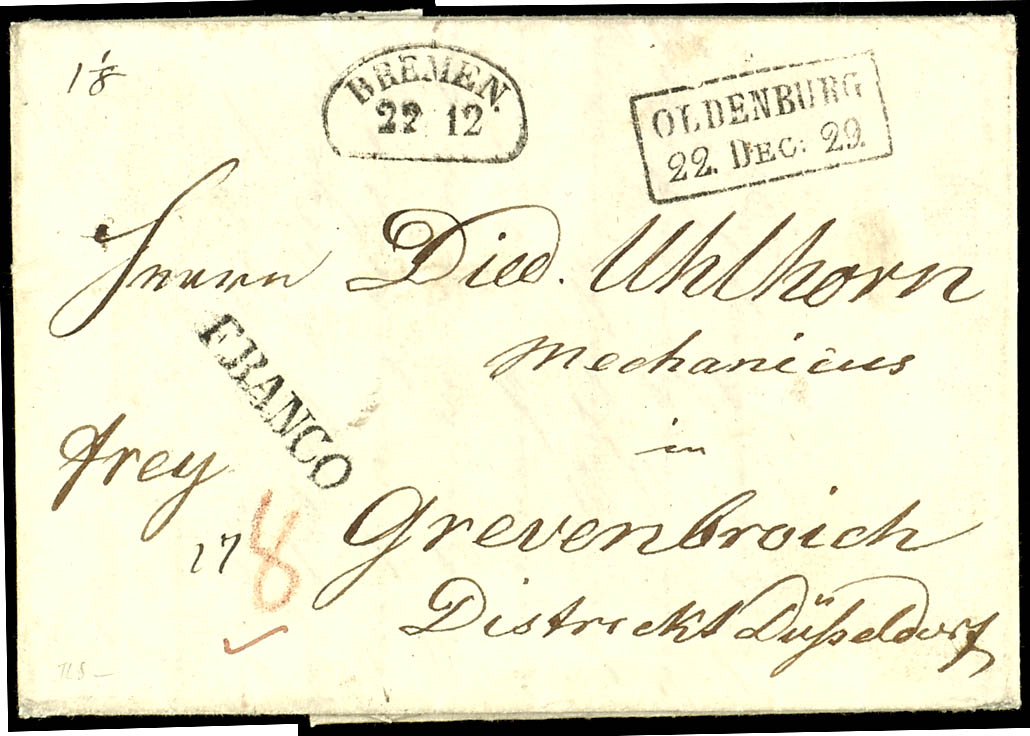 1 1/8
BREMEN.
22 12
OLDENBURG
22. DEC: 29.
Herrn Died. Uhlhorn
Mechanicus
FRANCO
in
frey
17 8
Grevenbroich
Districkt Düßeldorf